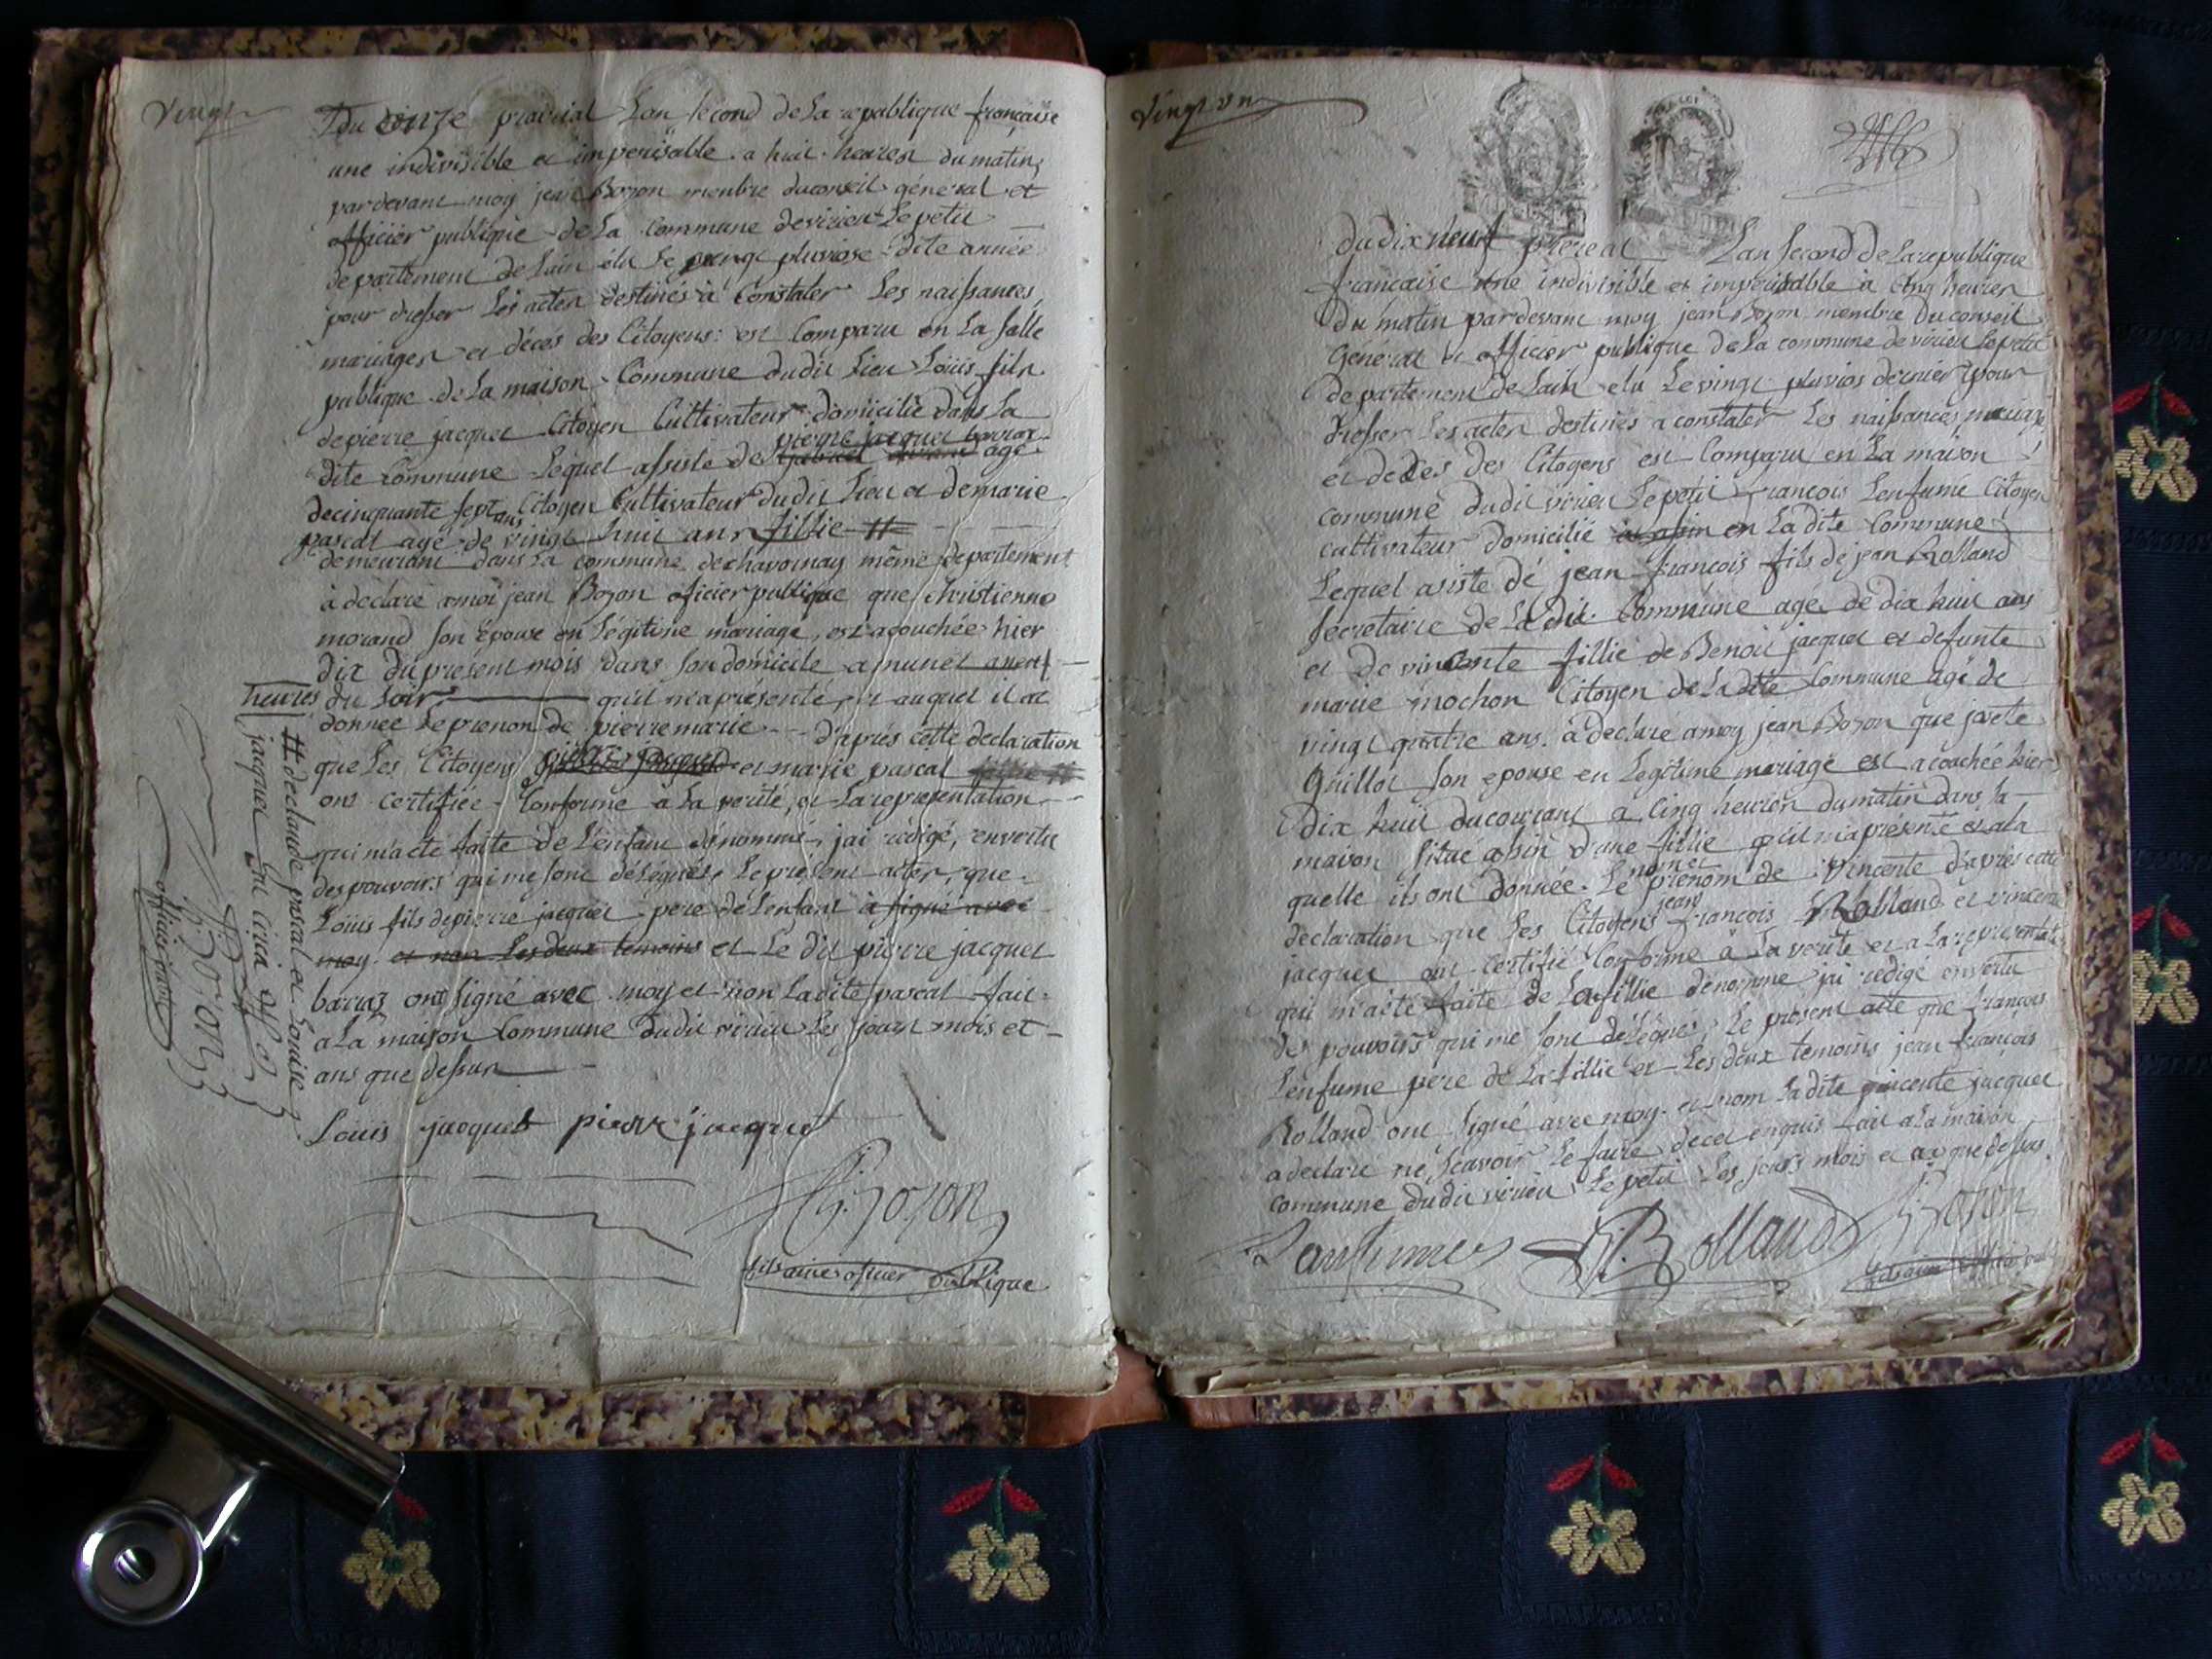 vingt
Du onze prairial Lan second de La republique française
une indivisible et imperisable a huit heures du matin
pardevant moy jean Bozon menbre du conseil général et
officier publique de La Commune de virieu Le petit
departement de Lain elu Le vingt pluviose dite année
pour dresser Les actes destinés à Constater Les naissances
mariages et décès des Citoyens est Comparu en La salle
publique de La maison Commune dudit Lieu Loüis fils
de pierre jacquet Citoyen Cultivateur domicilié dans La
pierre jacquet barraz
dite Commune Lequel assisté de agé
de cinquante sept ans Citoyen Cultivateur dudit Lieu et de marie
pascal agé de vingt huit ans fillie #
demeurant dans La commune de chavornay même departement
à déclaré a moi jean Bozon oficier publique que christienne
morand son épouse en Légitime mariage, est acouchée hier
dix du present mois dans son domicile a
heures du soir qu'il m'a présenté et auquel il a
donnee Le prenon de pierre marie d'après cette declaration
que Les Citoyens pierre jacquet et marie pascal
ont certifiée Conforme a La verité, et La representation
qui m'a eté faite de L'enfant dénommé, jai rédigé, en vertu
des pouvoirs qui me sont délégués Le present acter, que
Loüis fils de pierre jacquet pere de Lenfant a signé avec
moy et non Les deux temoins et Le dit pierre jacquet
barraz ont signé avec moy et non La dite pascal fait
a La maison Commune dudit virieu Les jours mois et
ans que dessus
Louis jacquet pierre jacquet
Bozon
fils ainé oficier publique
# de claude pascal et Louise
jacquet
Bozon
officier
vingt un
du dix neuf prereal Lan second de La republique
francaise une indivisible et imperisable à cinq heures
du matin pardevant moy jean Bozon membre du conseil
Général et officier publique de La commune de virieu Le petit
departement de Lain elu Le vingt pluvios dernier pour
dresser Les actes destinés a constater Les naissances mariage
et dedès des Citoyens est Comparu en La maison
commune dudit virieu Le petit francois Lenfume Citoyen
cultivateur domicilié en La dite Commune
Lequel asisté de jean francois fils de jean Rolland
secretaire de La dit Commune agé de dix huit ans
et de vincente fillie de Benoit jacquet et defunte
marie mochon Citoyen de La dite Commune agé de
vingt quatre ans. à declaré a moy jean Bozon que
Guillot son epouse en Legitime mariage est acouchée hier
dix huit du courant a Cinq heures du matin dans sa
maison situé d'une fillie qu'il m'a présenté et a la
nom et
quelle ils ont donnée Le prenom de vincente d'après cette
jean
declaration que Les Citoyens francois Rolland et vincente
jacquet ont Certifié Conforme a La verité et a La representation
qui m'a eté faite de La fillie dénommé jai redigé en vertu
des pouvoirs qui me sont délégués Le present acte que francois
Lenfume père de La fillie et Les deux temoins jean francois
Rolland ont signé avec moy et nom La dite vincente jacquet
a declaré ne scavoir Le faire de ce enquis fait a La maison
commune dudit virieu Le petit Les jours mois et an que dessus
Lanfume Rolland Bozon
fils ainé